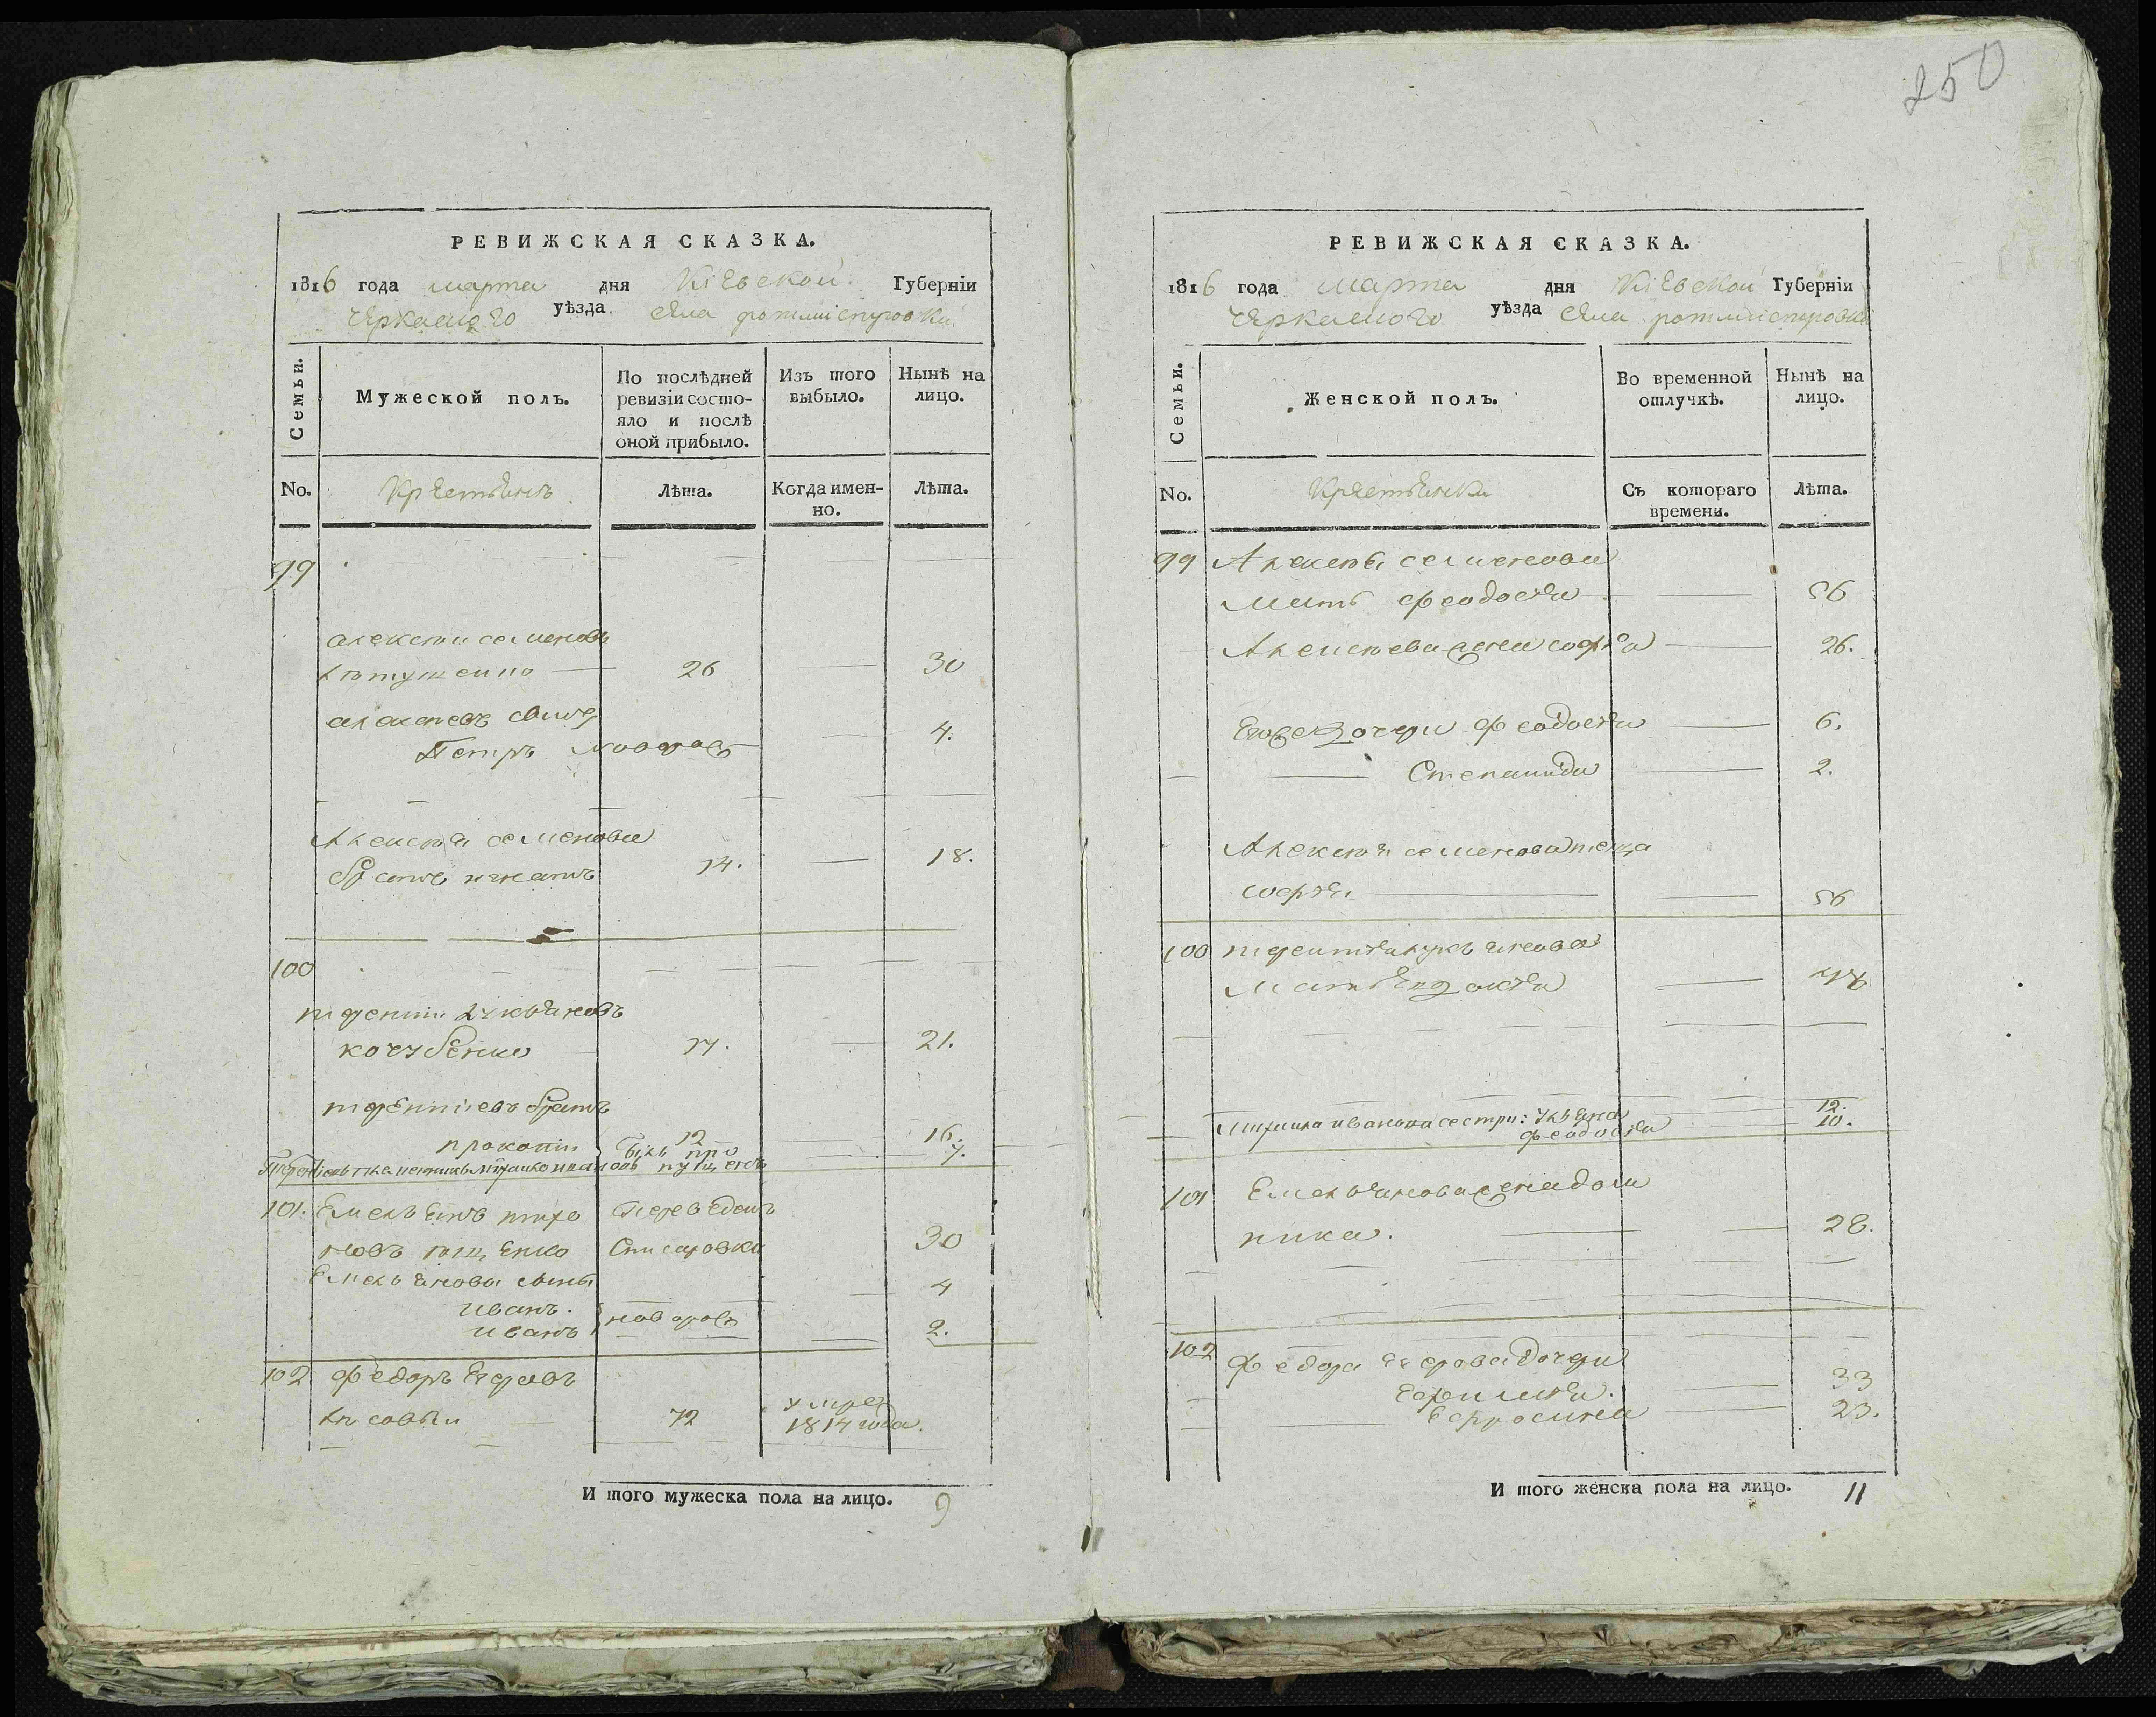 250
РЕВИЖСКАЯ СКАЗКА.
1816 года марта дня Кіевской Губерніи
Черкаского уѣзда села ротмистровки
Семьи.
Мужеской полъ.
По послѣдней ревизіи состо-
яло и послѣ
оной прибыло.
Изъ того
выбыло.
Нынѣ на
лицо.
No.
Крестьянъ
Лѣта.
Когда имен-
но.
Лѣта.
99
алексѣи семеновъ
26 30
алексѣевъ сынъ
Петръ новорож 4.
Алексѣя семенова
братъ игнатъ 14. 18.
100
терентіи лукьяновъ
кочубенко 17. 21.
терентіевъ братъ
прокопіи 12 16.
7.
101. Емельянъ тихо переведенъ
новъ 30
Емельянова сыны
иванъ. 4
иванъ новорож 2.
102 федоръ егоровъ
72 умре
1814 года.
И того мужеска пола на лицо. 9
РЕВИЖСКАЯ СКАЗКА.
1816 года марта дня Кіевской Губерніи
Черкаского уѣзда села ротмистровки
Семьи.
Женской полъ.
Во временной
отлучкѣ.
Нынѣ на
лицо.
No.
Крестьянки
Съ котораго
времени.
Лѣта.
99 Алексѣя семенова
мать феодосія 56
Алексѣева жена софія 26.
Егоже дочери феодосія 6.
Степанида 2.
Алексѣя семенова теща
софія 56
100 терентія лукьянова
мать Евдокія
иванова сестри: ульяна 12.
феодосія 10.
101 Емельянова жена дом
ника. 28.
102 федора егорова дочери
Ефимія. 33
Ефросинія 23.
И того женска пола на лицо. 11